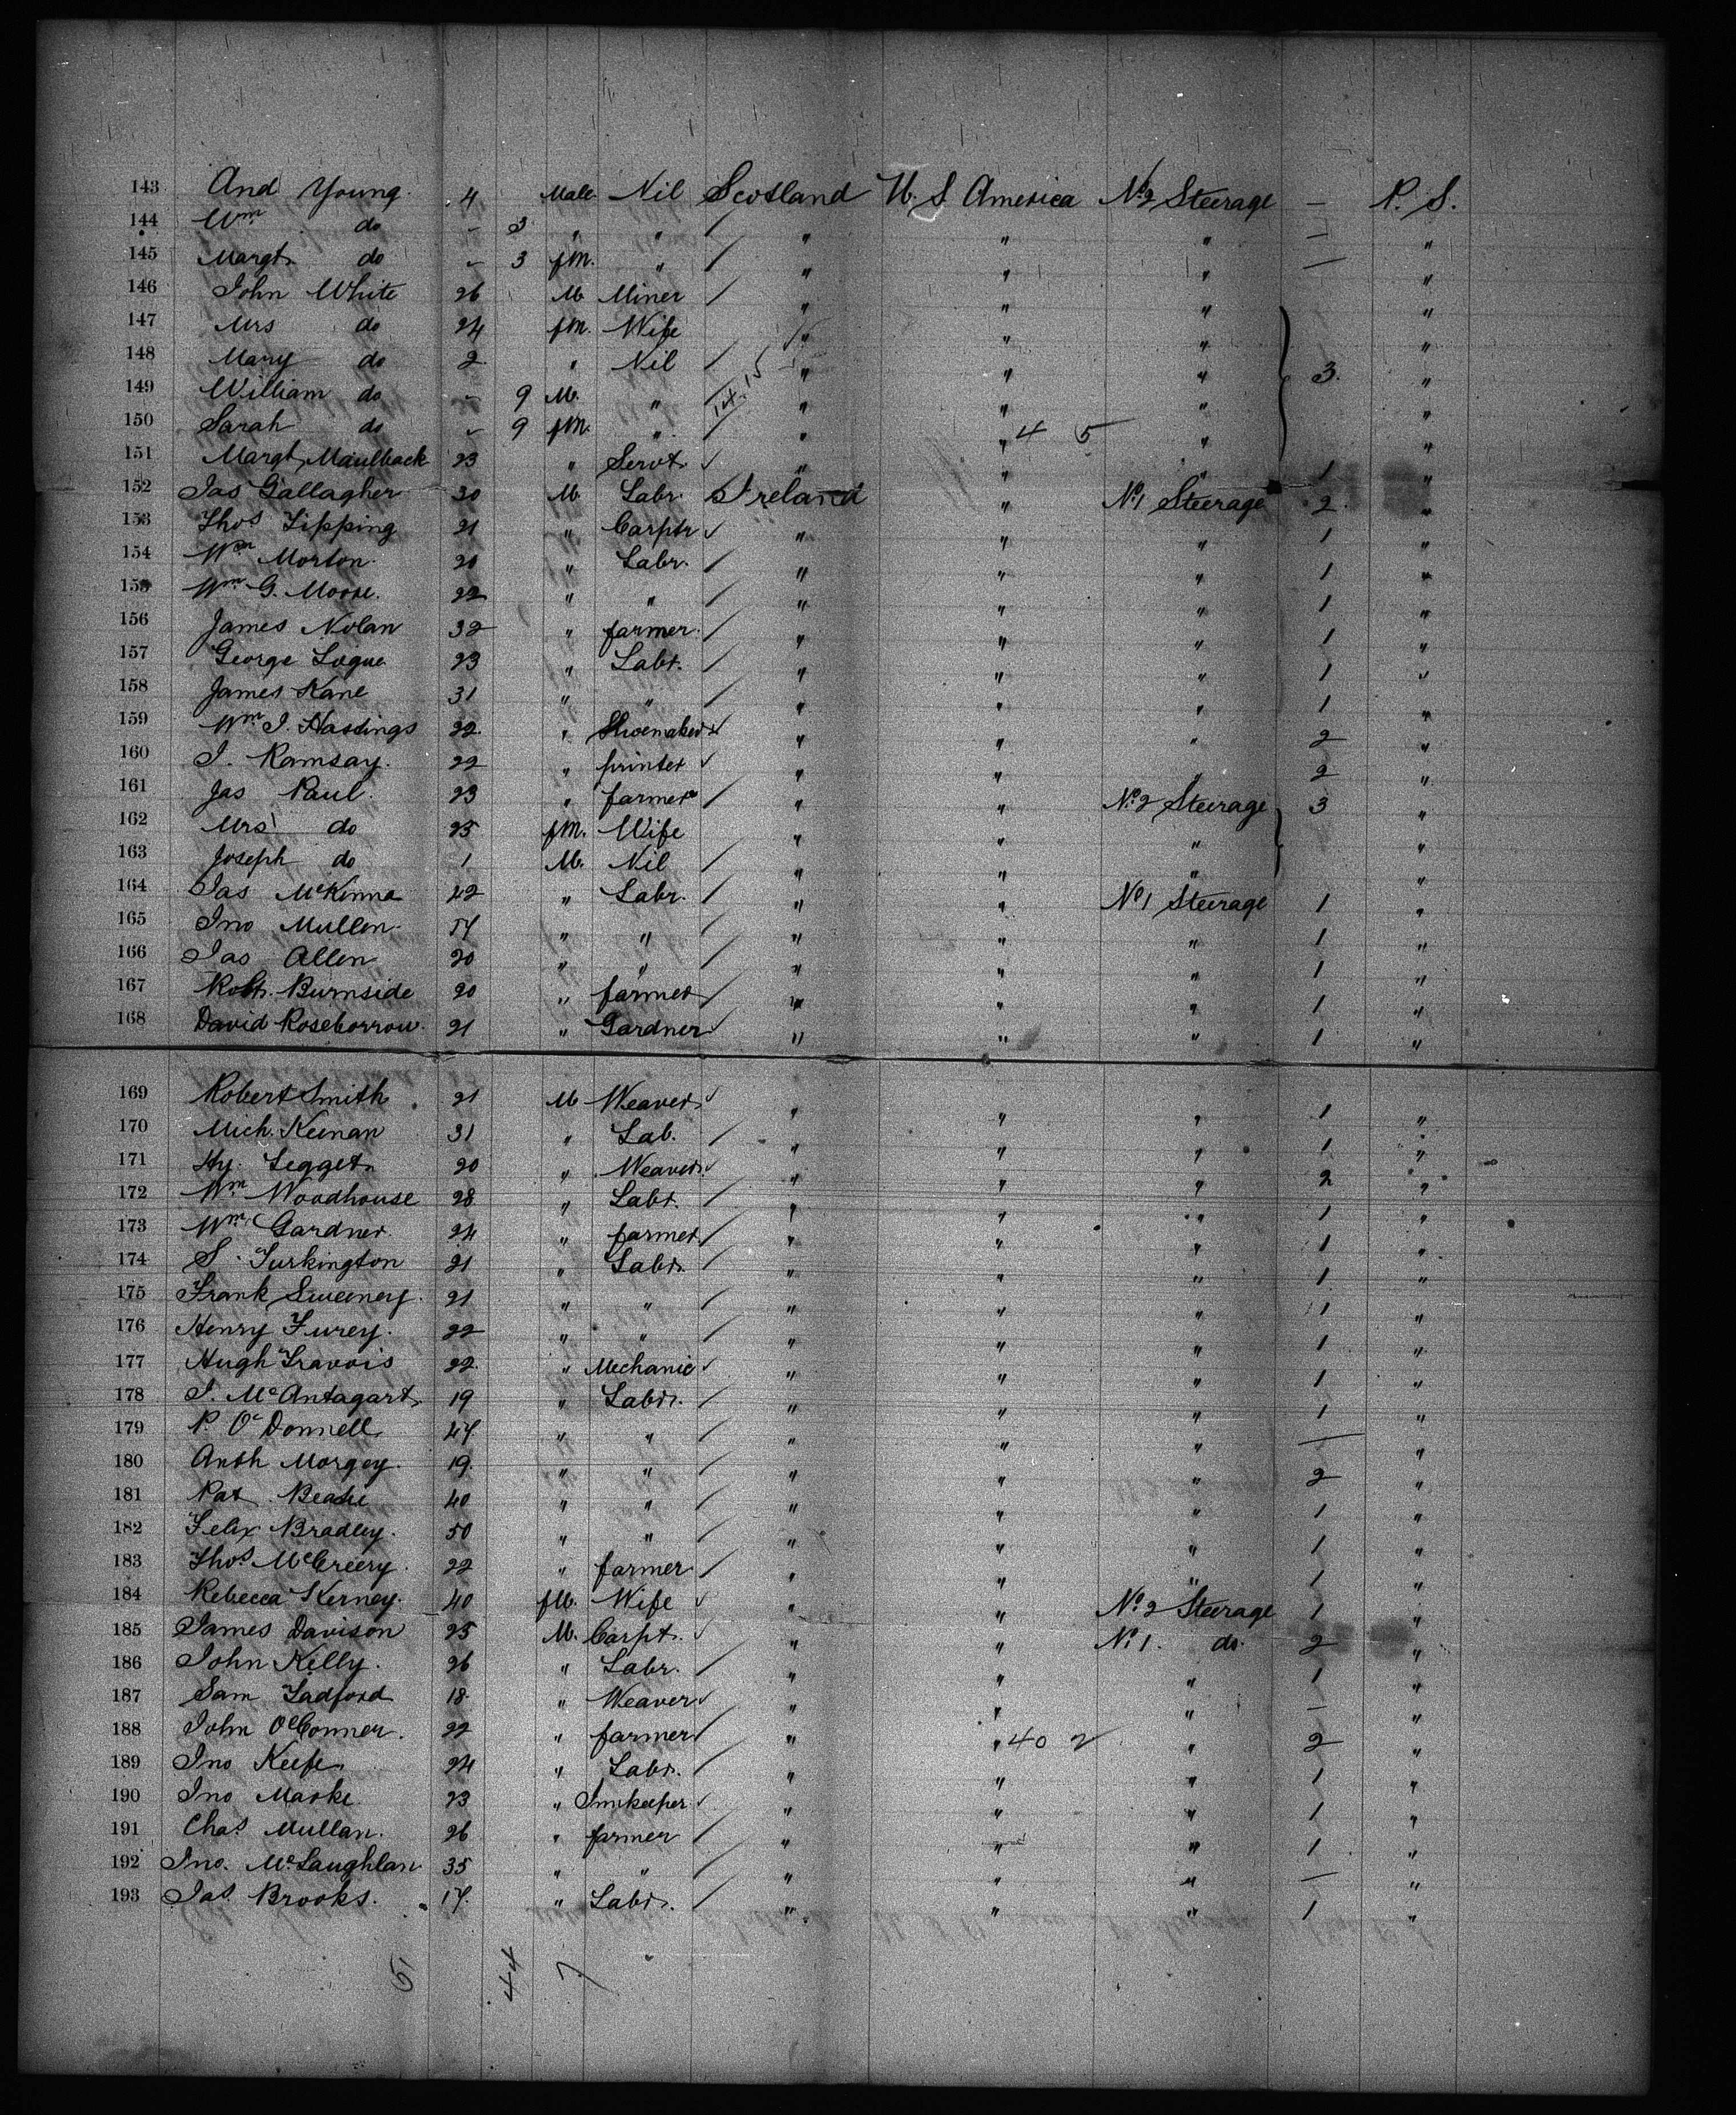 143 And Young. 4 Male Nil Scotland U. S. America No 2 Steerage — P. S.
144 Wm do - 3 " " / " " " — "
145 Margt. do - 3 fM. " / " " " — "
146 John White 26 M Miner / " " " "
147 Mrs do 24 fM. Wife " " " "
148 Mary do 2 " Nil / " " " 3. "
149 William do - 9 M. " / " " " "
150 Sarah do - 9 fM. " / " " 4 5 " "
151 Margt. Maulback 23 " Servt. ✓ " " " 1 "
152 Jas Gallagher 30 M. Labr. Ireland " No 1 Steerage 2. "
153 Thos Tipping 21 " Carptr ✓ " " " 1 "
154 Wm Morton. 20 " Labr. / " " " 1 "
155 Wm G. Moore. 22 " " / " " " 1 "
156 James Nolan 32 " farmer. / " " " 1 "
157 George Logue 23 " Labr. / " " " 1 "
158 James Kane 31 " " / " " " 1 "
159 Wm J. Hastings 22. " Shoemaker ✓ " " " 2 "
160 J. Ramsay. 22 " printer ✓ " " " 2 "
161 Jas Paul. 23 " farmer / " " No 2 Steerage 3 "
162 Mrs do 25 fM. Wife " " " "
163 Joseph do 1 M. Nil / " " " "
164 Jas McKenna 42 " Labr. / " " No 1 Steerage 1 "
165 Jno Mullen. " " / " " " 1 "
166 Jas Allen 20 " " / " " " 1 "
167 Robt. Burnside 20 " farmer / " " " 1 "
168 David Roseborrow. 21 " Gardner ✓ " " " 1 "
169 Robert Smith. 21 M Weaver ✓ " " " 1 "
170 Mich. Keenan 31 " Lab. / " " " 1 "
171 Hy. Legget. 20 " Weaver ✓ " " " 2 "
172 Wm Woodhouse 28 " Labr. / " " " 1 "
173 Wm Gardner. 24 " farmer. / " " " 1 "
174 S. Turkington 21 " Labr. / " " " 1 "
175 Frank Sweeney. 21 " " / " " " 1 "
176 Henry Furey. 22 " " / " " " 1 "
177 Hugh Travois 22. " Mechanic ✓ " " " 1 "
178 J. McAntagart. 19 " Labr. / " " " 1 "
179 P. O'Donnell. " " / " " " — "
180 Anth Morgey. 19. " " / " " " 2 "
181 Pat. 40 " " / " " " 1 "
182 Felix Bradley. 50 " " / " " " 1 "
183 Thos. McCreery. 22 " farmer / " " " 1 "
184 Rebecca Kerney. 40 fM. Wife ✓ " " No 2 Steerage 1 "
185 James Davison 25 M. Carpt. ✓ " " No 1. do. 2 "
186 John Kelly. 26 " Labr. / " " " 1 "
187 Sam Ladford 18. " Weaver ✓ " " " — "
188 John O'Conner. 22 " farmer / " " 40 2 " 2 "
189 Jno Keefe. 24 " Labr. / " " " 1 "
190 Jno 23 " Innkeeper. ✓ " " " 1 "
191 Chas. Mullan. 26 " farmer / " " " 1 "
192 Jno. McLaughlan 35 " " / " " " — "
193 Jas. Brooks. 17. " Labr. / " " " 1 "
51 44 7